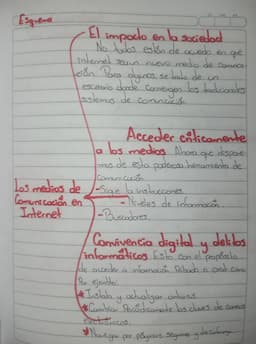 Esquema
El impacto en la sociedad
No todos están de acuerdo en que
internet sea un nuevo medio de comunica
ción. Para algunos se trata de un
escenario donde convergen los tradicionales
sistemas de comunicación.
Acceder críticamente
a los medios Ahora que dispone
mos de esta poderosa herramienta de
comunicación
-Sigue la instrucciones
-Niveles de información
-Buscadores.
Los medios de
Comunicación en
Internet
Convivencia digital y delitos
informáticos Esto con el propósito
de acceder a información
Por ejemplo:
Instala y actualizar antivirus
Cambiar Periódicamente las claves de correos
electrónicos.
Navega por páginas seguras y de